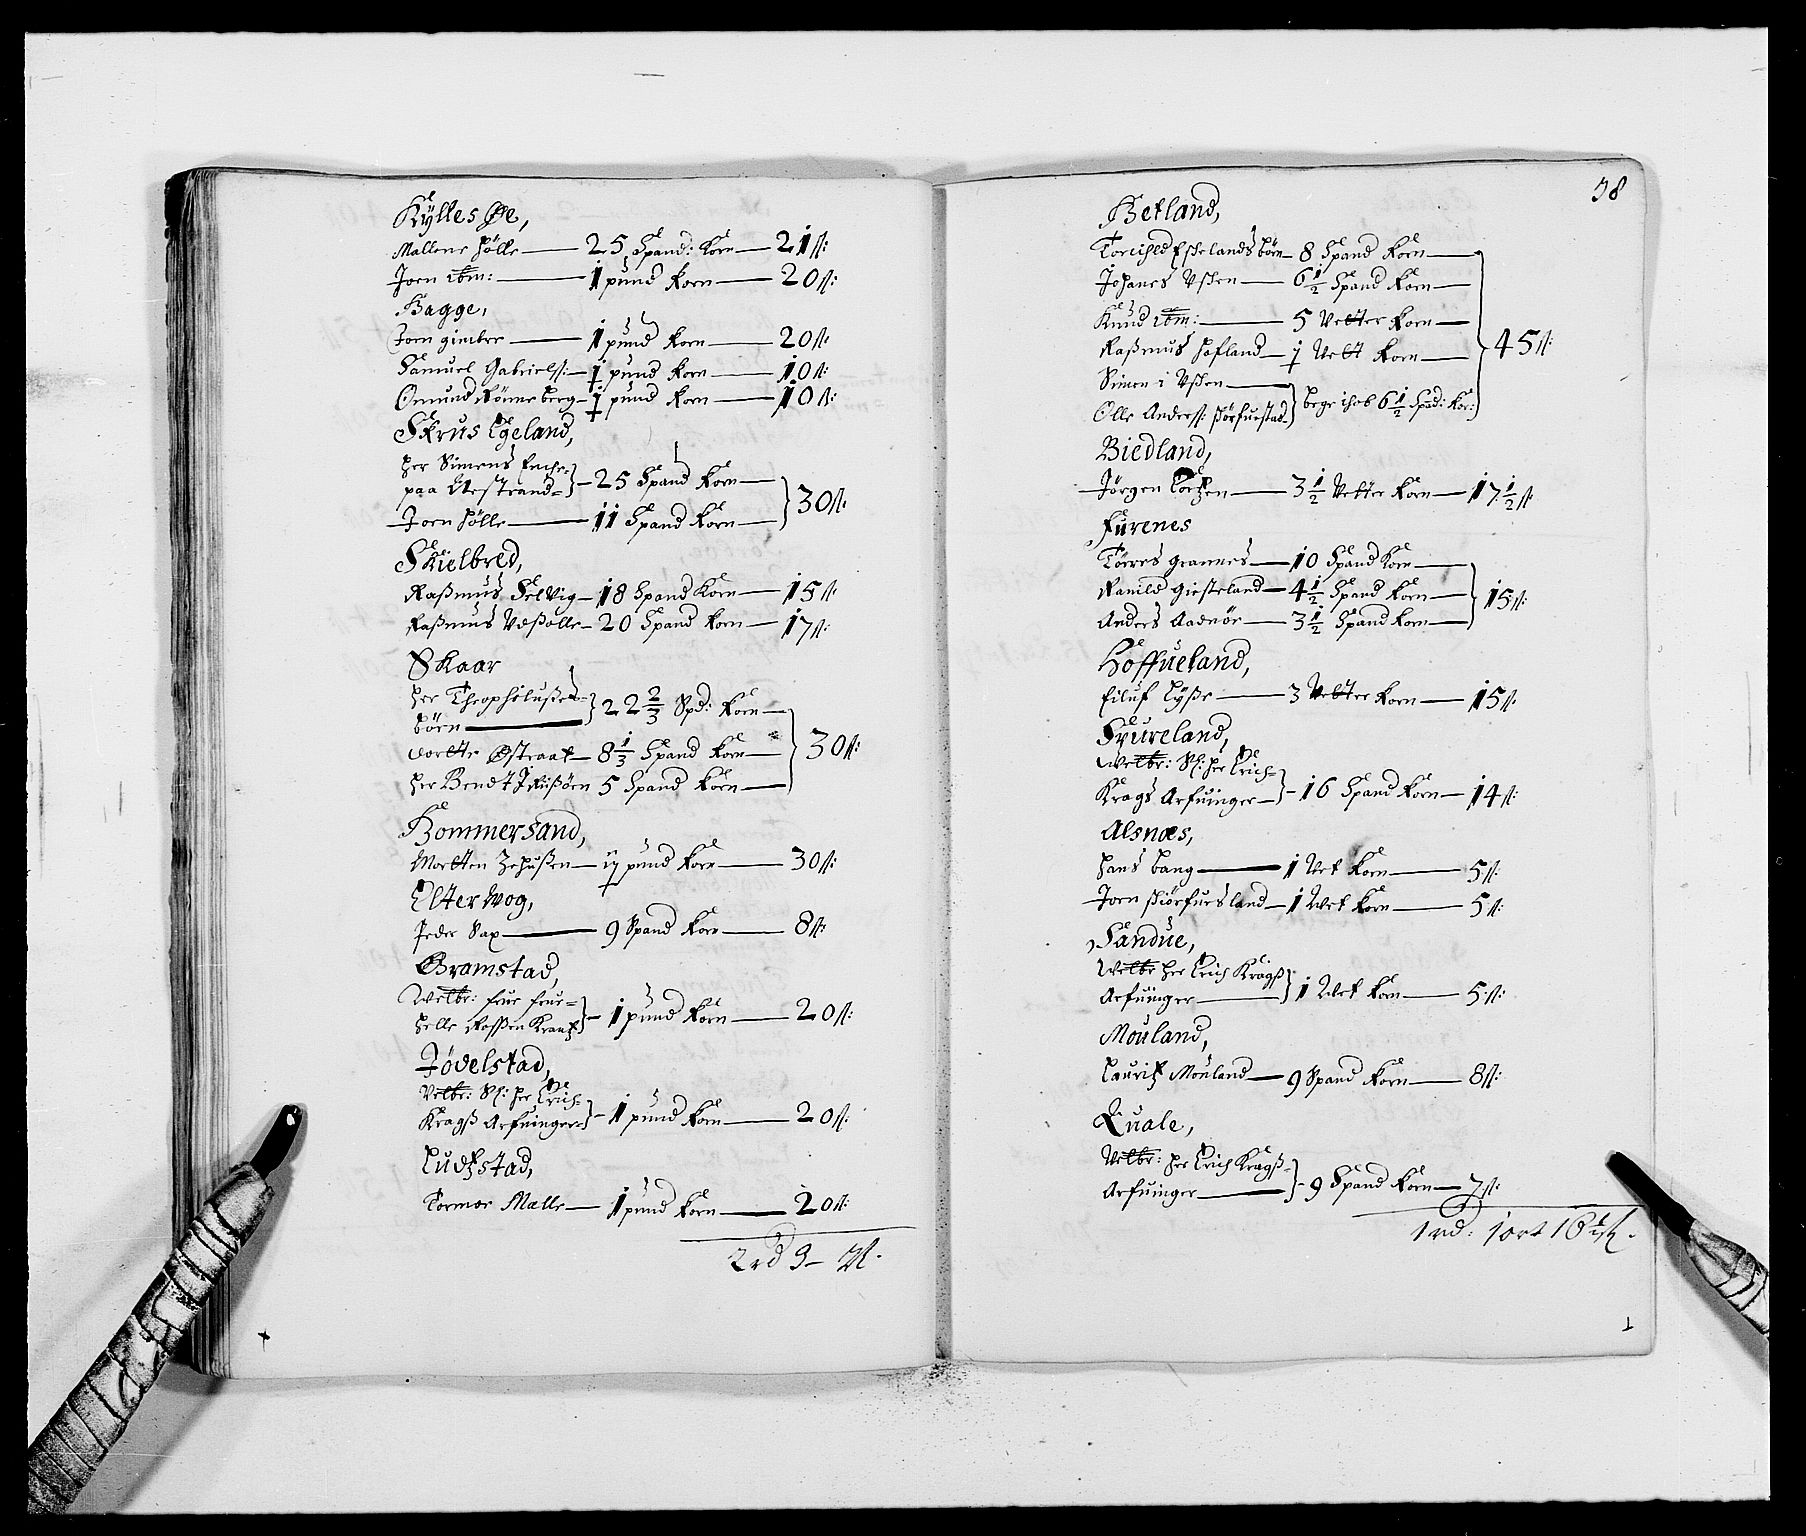 Kyllesøe,
Mallene Hølle — 25 Spand: Korn — 21 ß:
Joen ibm: — 1 pund Korn — 20 ß:
Hagge,
Joen gimbre — 1 pund Korn — 20 ß:
Samuel Gabrielß: — ɉ pund Korn — 10 ß:
Omund Rønneberg — ɉ pund Korn — 10 ß:
Skrus Egeland,
Her Simens Enche-
paa Nestrand — 25 Spand Korn —
Joen Hølle — 11 Spand Korn — 30 ß:
Skielbred,
Raßmus Selvig — 18 Spand Korn — 15 ß:
Raßmus Vdßolle — 20 Spand Korn — 17 ß:
Skaar
Her Theophilußes
børn — 22 2/3 Spd: Korn —
Dorette Østraat — 8 1/3 Spand Korn — 30 ß:
Her Bendt Jrißøen 5 Spand Korn —
Hommersand,
Mortten Zehußen — iɉ pund Korn — 30 ß:
Elterwog,
Peder Sax — 9 Spand Korn — 8 ß:
Gramstad,
Welbr: frue frue
Helle Roßenkrantz — 1 pund Korn — 20 ß:
Jødelstad,
Velbr: Sl: Her Erich
Kragß Arfuinger — 1 pund Korn — 20 ß:
Ludtzstad,
Tormoe Malle — 1 pund Korn — 20 ß:
2 rd 3 — 7 ß.
58
Hetland,
Torchild Eßkelands børn — 8 Spand Korn —
Johanes Vßen — 6 1/2 Spand Korn —
Knud ibm: — 5 Vetter Korn —
Raßmus Hafland — ɉ Vett Korn — 45 ß:
Simen i Vßen —
Olle Anderß: Hørfuestad — bege ihob 6 1/2 Spd: Kor:
Biedland,
Jørgen Loetzen — 3 1/2 Vetter Korn — 17 1/2 ß
Furenes
Tørres grannes — 10 Spand Korn —
Ranild Giesteland — 4 1/2 Spand Korn — 15 ß:
Anders Aadnøe — 3 1/2 Spand Korn —
Høffueland,
Eiluf Lyße — 3 Vetter Korn — 15 ß:
Spureland,
Welbr: Sl: Her Erich
Krags Arfuinger — 16 Spand Korn — 14 ß:
Alsnæs,
Hans bang — 1 Vet Korn — 5 ß:
Joen Hiørfuesland — 1 Wet Korn — 5 ß:
Sandue,
Welbr Her Erich Kragß
Arfuinger — 1 Wet Korn — 5 ß:
Mouland,
Lauritz Mouland — 9 Spand Korn — 8 ß:
Quale,
Velbr: Her Erich Kragß-
Arfuinger — 9 Spand Korn — 7 ß:
1 rd: 1 ort 16 1/2 ß.